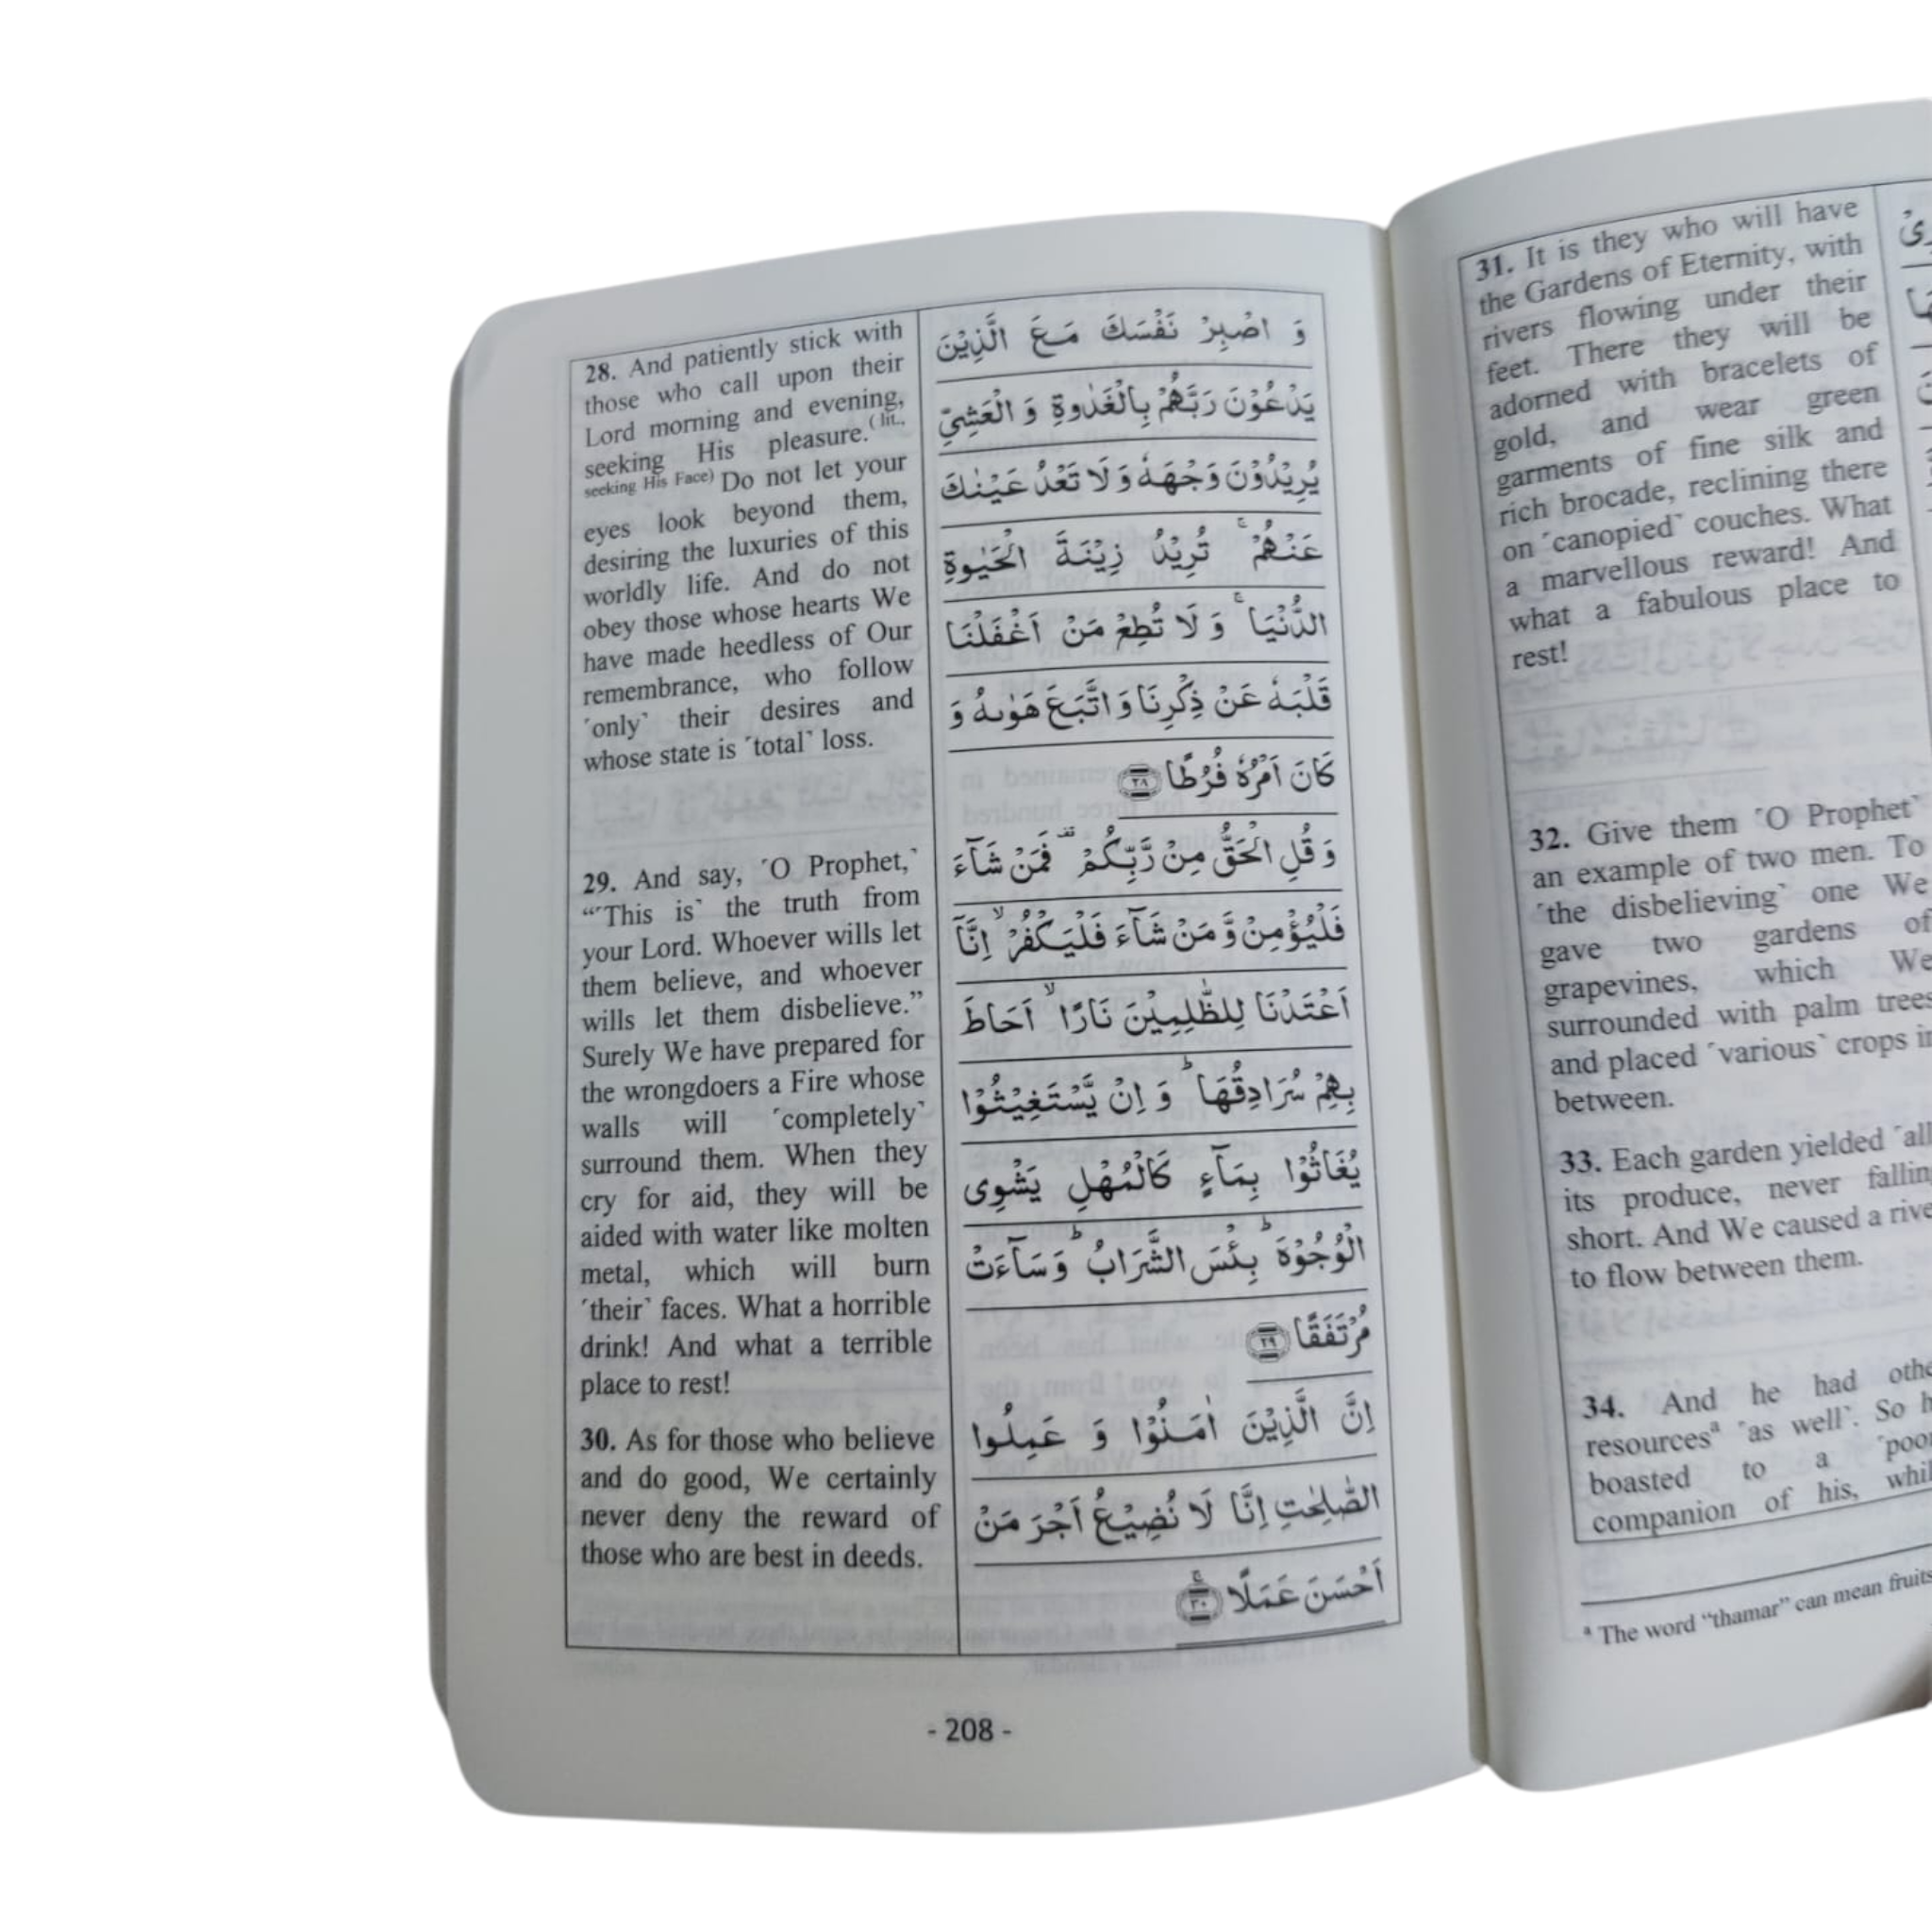 28. And patiently stick with
those who call upon their
Lord morning and evening,
seeking His pleasure.(lit.,
seeking His Face) Do not let your
eyes look beyond them,
desiring the luxuries of this
worldly life. And do not
obey those whose hearts We
have made heedless of Our
remembrance, who follow
´only` their desires and
whose state is ´total` loss.
29. And say, ´O Prophet,`
“´This is` the truth from
your Lord. Whoever wills let
them believe, and whoever
wills let them disbelieve.”
Surely We have prepared for
the wrongdoers a Fire whose
walls will ´completely`
surround them. When they
cry for aid, they will be
aided with water like molten
metal, which will burn
´their` faces. What a horrible
drink! And what a terrible
place to rest!
30. As for those who believe
and do good, We certainly
never deny the reward of
those who are best in deeds.
وَ اصْبِرْ نَفْسَكَ مَعَ الَّذِيْنَ
يَدْعُوْنَ رَبَّهُمْ بِالْغَدٰوةِ وَ الْعَشِيِّ
يُرِيْدُوْنَ وَجْهَهٗ وَ لَا تَعْدُ عَيْنٰكَ
عَنْهُمْ ۚ تُرِيْدُ زِيْنَةَ الْحَيٰوةِ
الدُّنْيَا ۚ وَ لَا تُطِعْ مَنْ اَغْفَلْنَا
قَلْبَهٗ عَنْ ذِكْرِنَا وَ اتَّبَعَ هَوٰىهُ وَ
كَانَ اَمْرُهٗ فُرُطًا ۲۸
وَ قُلِ الْحَقُّ مِنْ رَّبِّكُمْ ۫ فَمَنْ شَآءَ
فَلْيُؤْمِنْ وَّ مَنْ شَآءَ فَلْيَكْفُرْ ۙ اِنَّاۤ
اَعْتَدْنَا لِلظّٰلِمِيْنَ نَارًا ۙ اَحَاطَ
بِهِمْ سُرَادِقُهَا ؕ وَ اِنْ يَّسْتَغِيْثُوْا
يُغَاثُوْا بِمَآءٍ كَالْمُهْلِ يَشْوِى
الْوُجُوْهَ ؕ بِئْسَ الشَّرَابُ ؕ وَ سَآءَتْ
مُرْتَفَقًا ۲۹
اِنَّ الَّذِيْنَ اٰمَنُوْا وَ عَمِلُوا
الصّٰلِحٰتِ اِنَّا لَا نُضِيْعُ اَجْرَ مَنْ
اَحْسَنَ عَمَلًا ۳۰
- 208 -
31. It is they who will have
the Gardens of Eternity, with
rivers flowing under their
feet. There they will be
adorned with bracelets of
gold, and wear green
garments of fine silk and
rich brocade, reclining there
on ´canopied` couches. What
a marvellous reward! And
what a fabulous place to
rest!
32. Give them ´O Prophet`
an example of two men. To
´the disbelieving` one We
gave two gardens of
grapevines, which We
surrounded with palm trees
and placed ´various` crops in
between.
33. Each garden yielded ´all
its produce, never
short. And We caused a
to flow between them.
34. And he had
resourcesª ´as well`. So
boasted to a
companion of his,
ª The word “thamar” can mean fruits